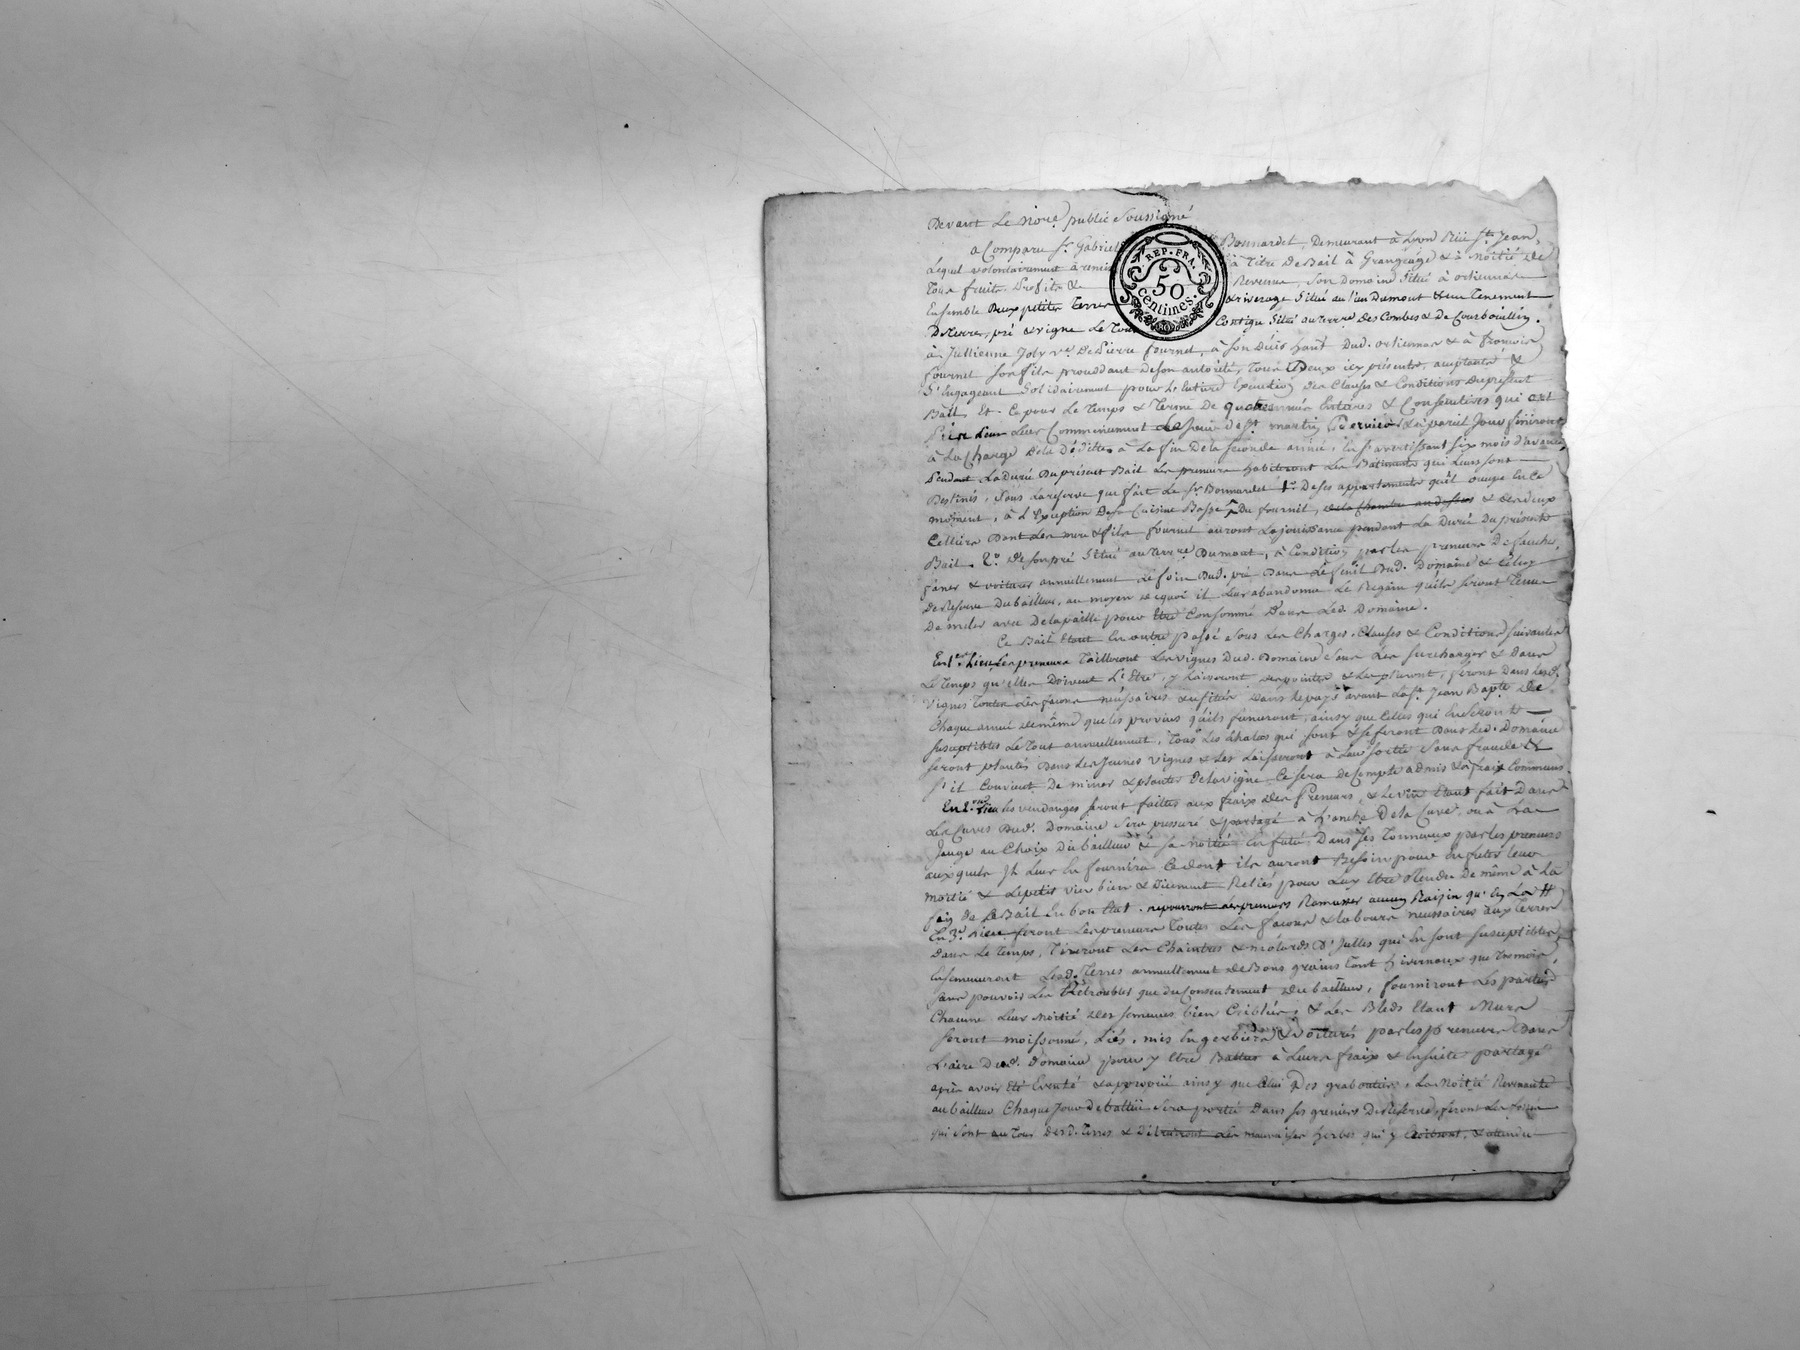 Devant Le Nore public Soussigné
a Comparu Sr. Gabriel Bonnardet, Demeurant à Lyon Rüe St. Jean,
Lequel volontairement à remis à Titre De Bail à Grangeage & à Moitié De
Tous fruits Profits & Revenus, Son Domaine Situé à
REP. FRA.
50
Centimes.
Ensemble Deux petites Terres & riverage Situé au lieu Dumont & un Tenement
De terre, pré & vigne Le Tout Contigu Situé au Terre Des Combes & De Courbouillin.
à Jullienne Joly ve. De Pierre fournet, à Son Duis & à françois
fournet Son fils procédant De Son autorité, Tous Deux icy présents, acceptants &
S'Engageant Solidairement pour L'entière Execution Des Clauses & Conditions Du présent
Bail. Et Ce pour Le Temps & Terme De quatre années Entières & Consecutives qui ont
pris Leur Commencement Le jour De St martin Dernier & à pareil Jour finiront
à La Charge De la Déditte à La fin De la Seconde année, En S'avertissant Six mois d'avance
Pendant La Durée Du présent Bail Les preneurs habiteront Les Batiments qui Leurs sont
Destinés, Sous La reserve que fait Le Sr. Bonnardet 1o. De Ses appartements qu'il occupe En Ce
moment, à L'Exception De La Cuisine Basse, Du fournil, de la Chambre au dessus & des deux
Celliers Dont Les mere & fils fournet auront La jouissance pendant La Durée Du présent
Bail. 2o. De Son pré Situé au Terre Dumont, à Condition par Les preneurs De faucher,
faner & voiturer annuellement Le foin Dud. pré Dans Le fenil Dud. Domaine &
De Reserve Du bailleur, au moyen De quoi il Leur abandonne Le Regain qu'ils Seront Tenus
De meler avec De la paille pour Etre Consommé Dans Led. Domaine.
Ce Bail Etant En outre passé Sous Les Charges, Clauses & Conditions Suivantes
En 1er. Lieu Les preneurs Tailleront Les vignes Dud. Domaine Sans Les Surcharger & Dans
Le Temps qu'Elles Doivent L'Etre, y Laisseront & feront Dans Lesd.
vignes Toutes Les façons nécessaires & usitées Dans Le pays avant La St Jean Bapte De
Chaque année De même que Les provins qu'ils fumeront, ainsy que Celles qui En Seront
susceptibles Le Tout annuellement, Tous Les Echalas qui sont & Se feront Dans Led. Domaine
Seront plantés Dans Les Jeunes vignes & Les Laisseront à Leur Sortie Sans fraude &
S'il Convient De miner & planter De la vigne Ce Sera De Compte à demis & à fraix Communs.
En 2me. Lieu les vendanges Seront faittes aux fraix Des Preneurs, & Le vin Etant fait Dans
Les Cuves Dud. Domaine Sera pressuré & partagé à L'anche De la Cuve, ou à La
Jauge au Choix Du bailleur & Sa moitié Enfutée Dans Ses Tonneaux par les preneurs
auxquels Il Leur En fournira Ce dont ils auront Besoin pour Enfuter Leur
moitié & Le petit vin bien & Düement Reliés pour Luy Etre Rendus De même à La
fin De Ce Bail En bon Etat. ne pourront Les preneurs Ramasser aucun Raisin qu'En La
En 3e. Lieu feront Les preneurs Toutes Les façons & Labours nécessaires aux Terres
Dans Le Temps, Leveront Les Chaintres & D'Icelles qui En Sont Susceptibles,
Ensemenceront Lesd. Terres annuellement De Bons grains Tant hivernaux que Tremois,
Sans pouvoir Les Retroubler que Du Consentement Du bailleur, fourniront Les parties
Chacune Leur Moitié Des Semences bien Criblées, & Les Bleds Etant Murs
Seront moissonné, Liés, mis En gerbiers & voiturés par les preneurs Dans
L'aire Dud. Domaine pour y Etre Battus à Leurs fraix & Ensuitte partagé
après avoir Eté Eventé & approprié ainsy que Celui Des La Moitié Revenante
au bailleur Chaque Jour De batture Sera portée Dans Ses greniers De Reserve, feront Les fossés
qui Sont au Tour Desd. Terres & Détruiront Les mauvaises herbes qui y Croîtront, & attendu